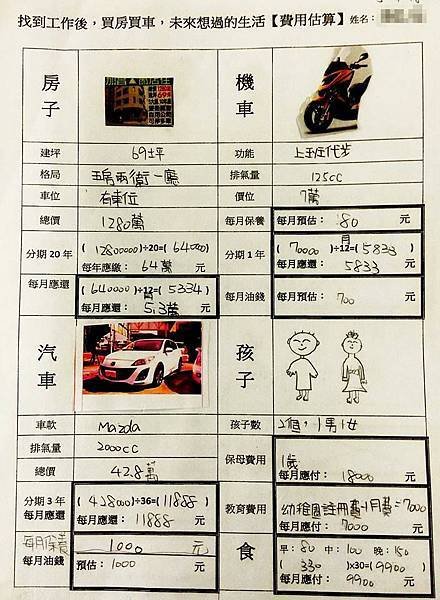 找到工作後，買房買車，未來想過的生活【費用估算】姓名：
房子
機車
建坪 69坪 功能 上班代步
格局 五房兩衛一廳 排氣量 125cc
車位 有車位 價位 7萬
總價 1280萬 每月保養 每月預估： 80 元
分期20年 ( 12800000 )÷20=( 640000 )
每年應繳： 64萬 元
分期1年 ( 70000 )÷12=( 5833 )
月
每月應還： 5833 元
每月應還 ( 640000 )÷12=( 5334 )
月
每月應還： 5.3萬 元
每月油錢 每月預估： 700 元
汽車
孩子
車款 Mazda 孩子數 2個，1男1女
排氣量 2000cc
保母費用 1歲
每月應付： 18000 元
總價 42.8萬
分期3年 ( 428000 )÷36=( 11888 )
每月應還 每月應還： 11888 元
教育費用 幼稚園註冊費+月費=7000
每月應付： 7000 元
每月保養 1000 元
每月油錢 預估： 1000 元
食
早： 80 中： 100 晚： 150
( 330 )x30=( 9900 )
每月應付： 9900 元